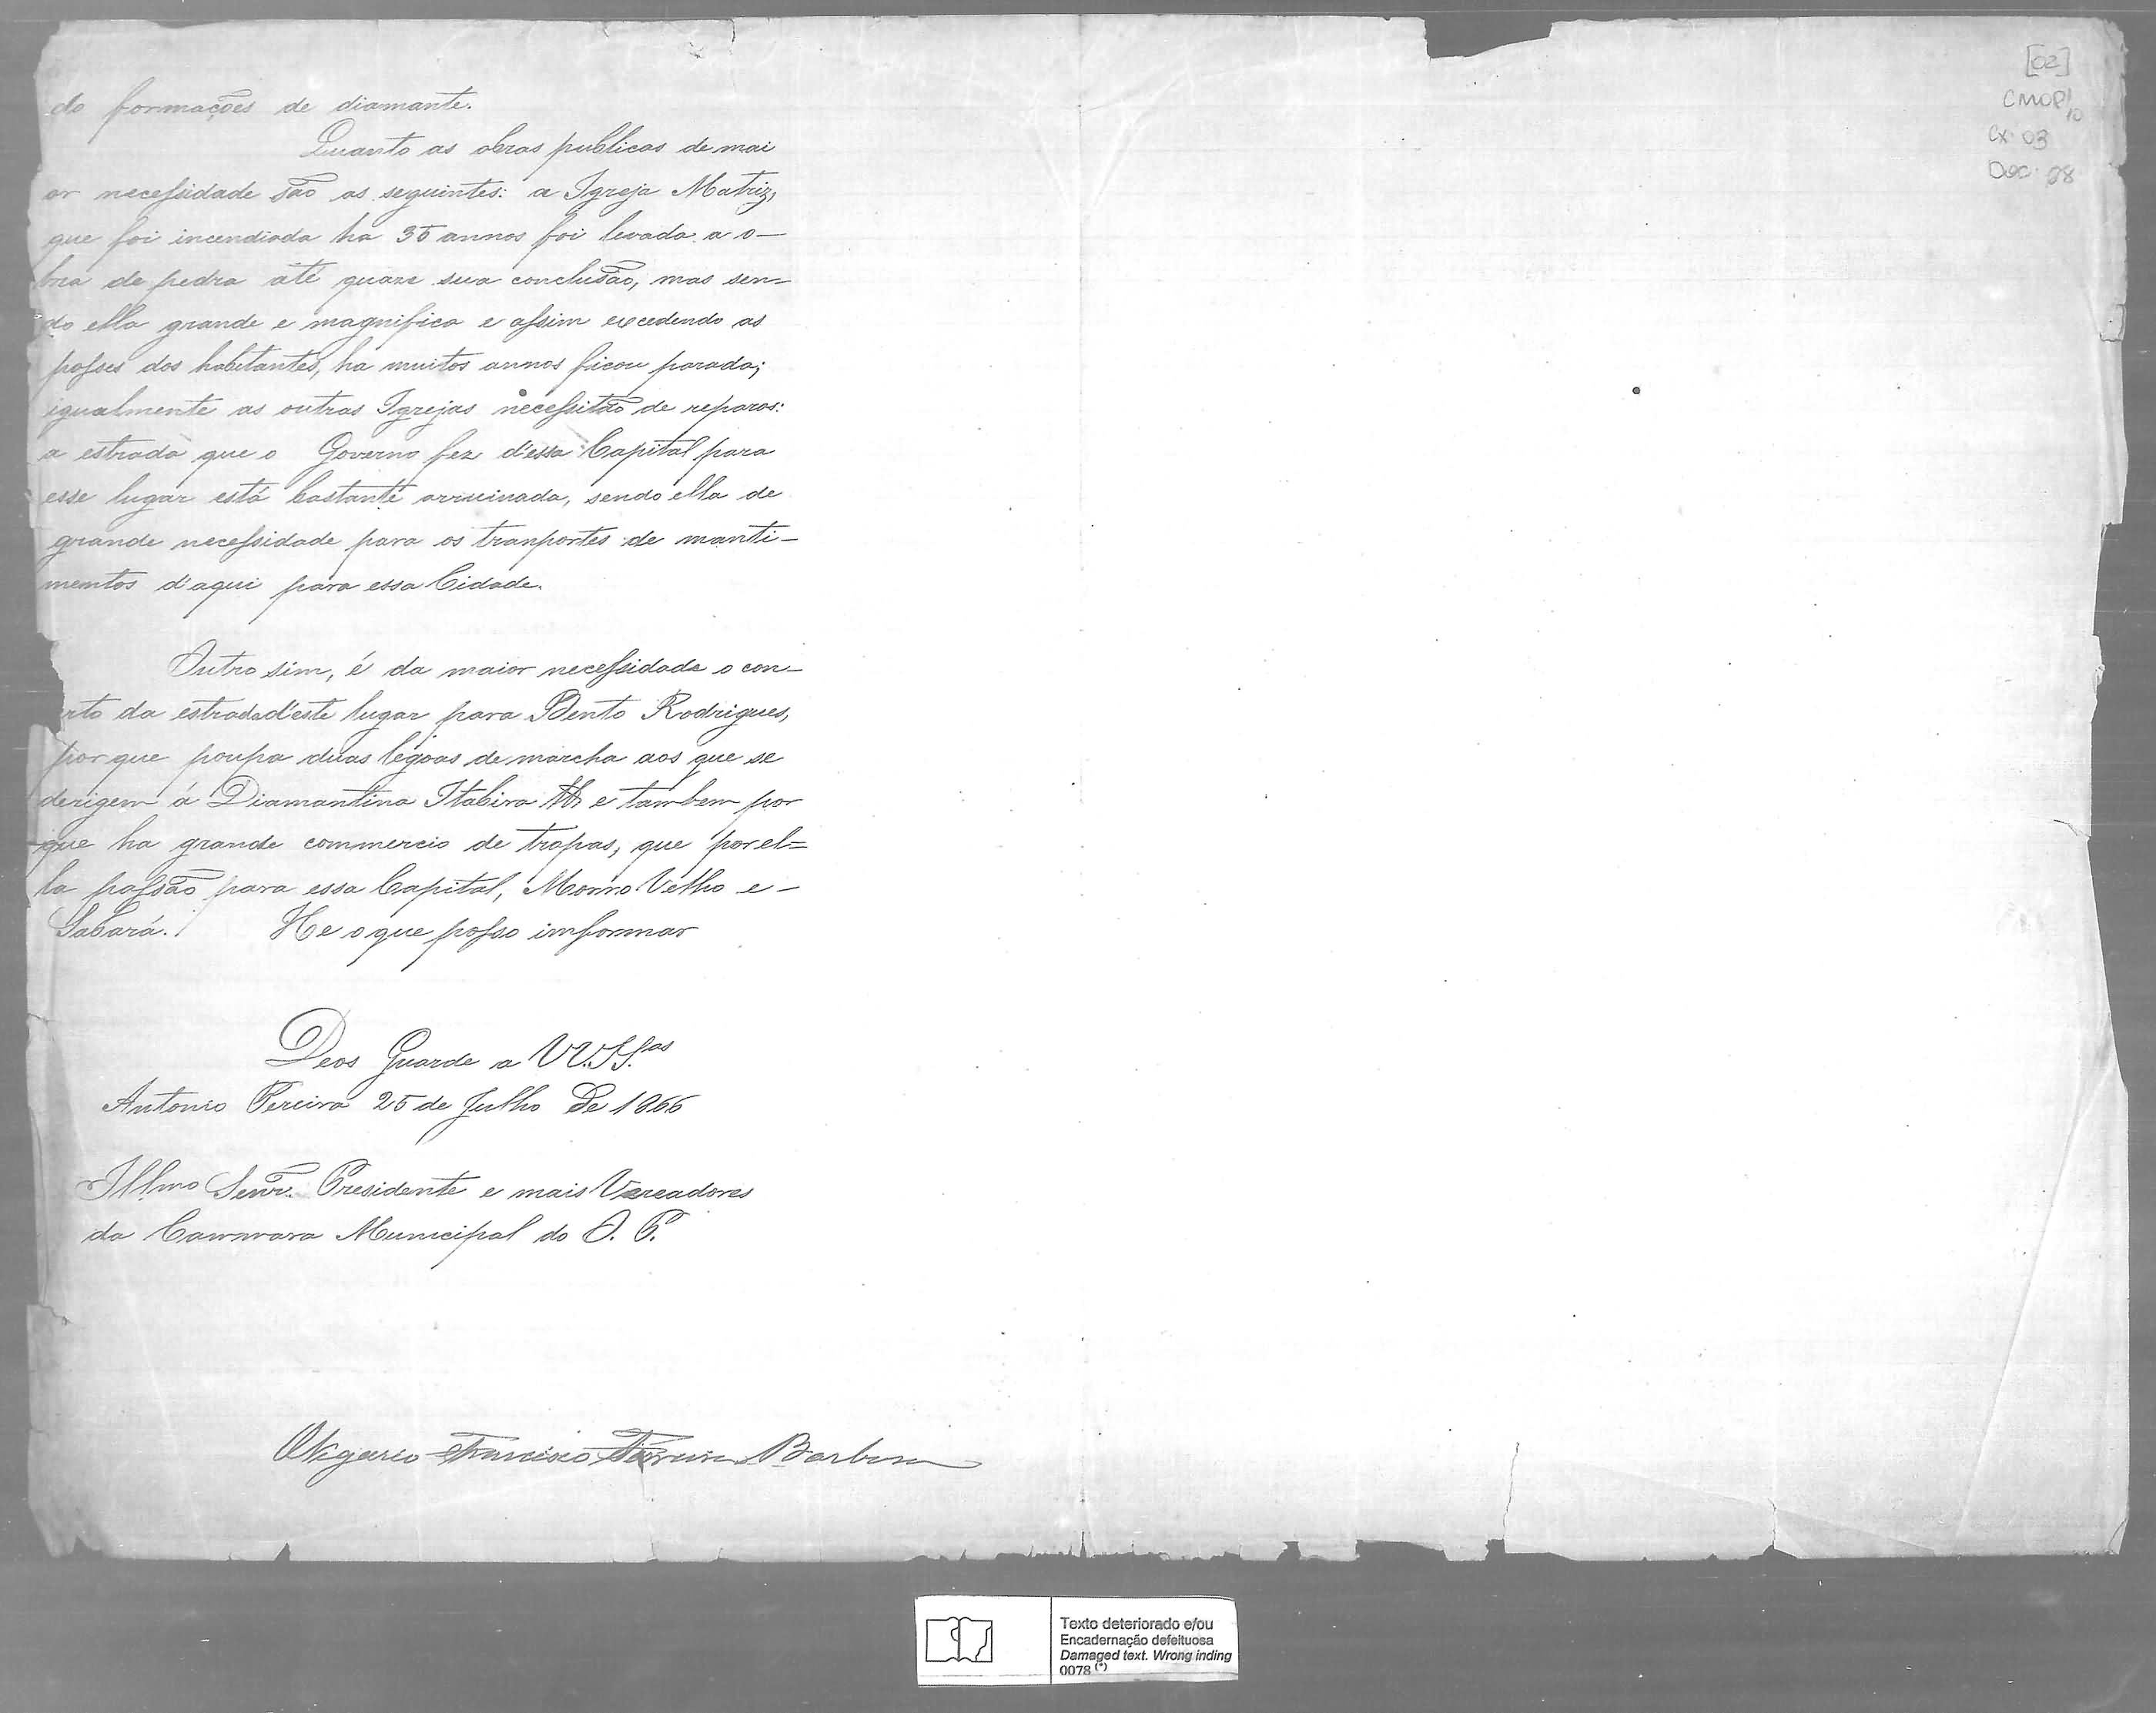 do formações de diamante.
Quanto as obras publicas de mai
or necessidade são as seguintes: a Igreja Matriz,
que foi incendiada ha 35 annos foi levada a o-
bra de pedra até quaze sua conclusão, mas sen=
do ella grande e magnifica e assim excedendo as
posses dos habitantes, ha muitos annos ficou parada;
igualmente as outras Igrejas necessitão de reparos:
a estrada que o Governo fez d'essa Capital para
esse lugar está bastante arruinada, sendo ella de
grande necessidade para os tranportes de manti-
mentos d'aqui para essa Cidade.
Outro sim, é da maior necessidade o con-
rto da estrada d'este lugar para Bento Rodrigues,
por que poupa duas legoas de marcha aos que se
derigem á Diamantina Itabira e tambem por
que ha grande commercio de tropas, que por el=
la passão para essa Capital, Morro Velho e-
Sabará. He o que posso imformar
Deos Guarde a VV.SS.as
Antonio Pereira 25 de Julho de 1866
Illmo Senr. Presidente e mais Vereadores
da Cammara Municipal do O. P.
Olegario Francisco Barbosa
[02]
CMOP
Cx. 03
Doc. 98
Texto deteriorado e/ou
Encadernação defeituosa
Damaged text. Wrong inding
0078 (*)